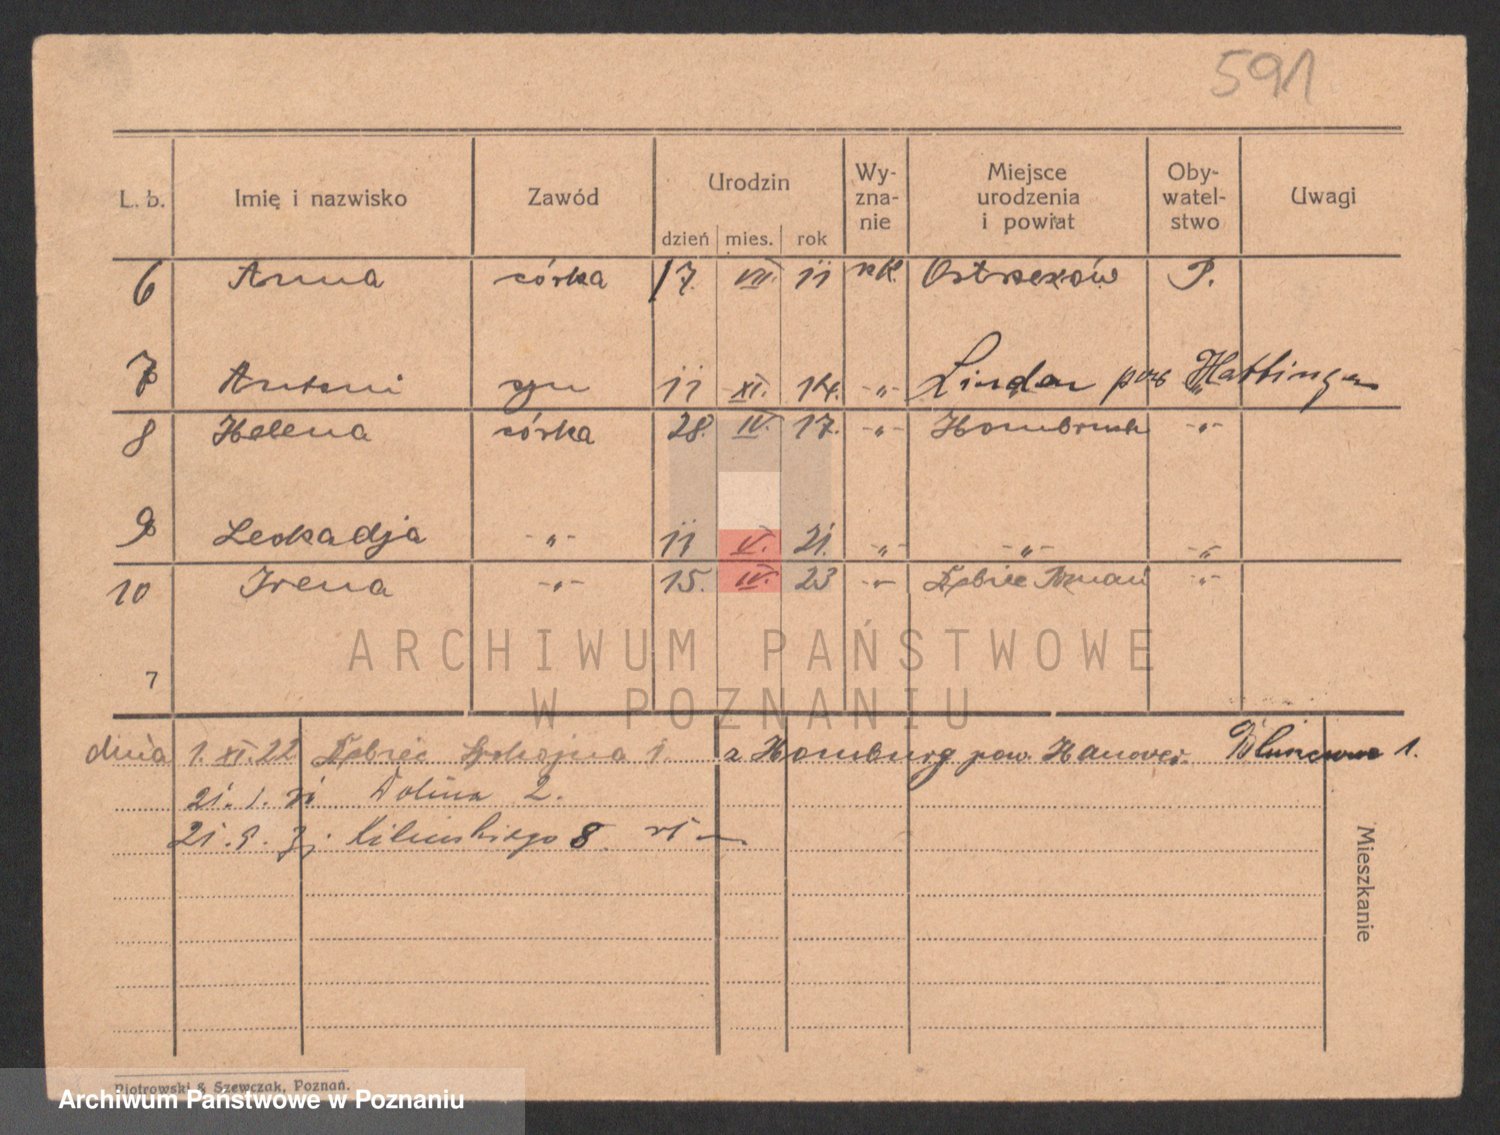 591
L. b. Imię i nazwisko Zawód Urodzin Wy-zna-nie Miejsce urodzenia i powiat Oby-watel-stwo Uwagi
dzień mies. rok
6 Anna córka 17. VII. 11 rk. Ostrzeszów P.
7 Antoni syn 11 XI. 14. -"- Linden pow Hattingen
8 Helena córka 28. IV. 17. -"- Hombruch -"-
9 Leokadja -"- 11 V. 21. -"- -"- -"-
10 Irena -"- 15. IV. 23 -"- Dębiec Poznań -"-
7
dnia 1. XI. 22 Dębiec Spokojna 1. z Homburg pow. Hanover. 1.
21. 1. 31 Dolina 2.
21. 9. Kilińskiego 8
Mieszkanie
Piotrowski & Szewczak, Poznań.
ARCHIWUM PAŃSTWOWE
W POZNANIU
Archiwum Państwowe w Poznaniu